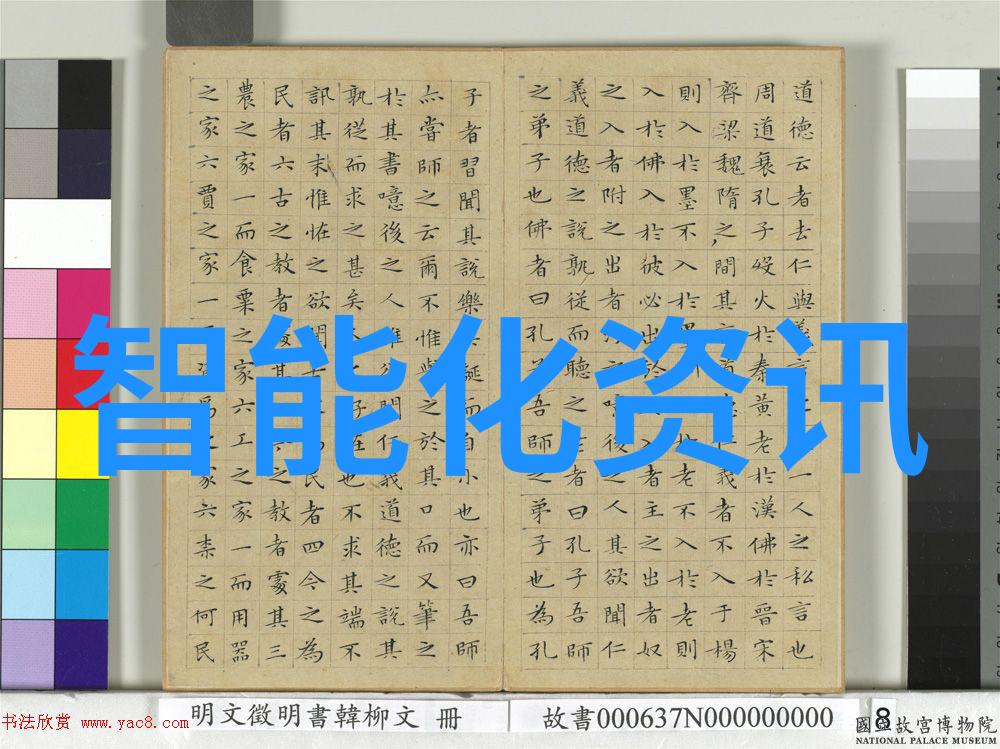 智能化资讯
道德云者去仁與義言一人之私言也
周道衰孔子歿火於秦黃老於漢佛於晉宋
齊梁魏隋之間其義者不入于楊
則入於墨不入於於老不入於老則
入於佛入於彼必出於入者主之出者奴
之入者附之出者之噫後之人其欲聞仁
義道德之說孰從而聽之者曰孔子吾師
之弟子也佛者曰孔吾師之弟子也為孔
子者習聞其說樂誕而自小也亦曰吾師
亦嘗師之云爾不惟之於其口而又筆之
於其書噫後之人聞義道德之說其
孰從而求之甚矣也不求其端不
訊其末惟怪之欲聞民者四今之為
民者六古之教者其之教者處其三
農之家一而食粟之家六工之家一而用器
之家六賈之家一家六柰之何民
明文徵明書韓柳文 冊
故書000637N000000000
8
國立故宮博物院
NATIONAL PALACE MUSEUM
书法欣赏 www.yac8.com